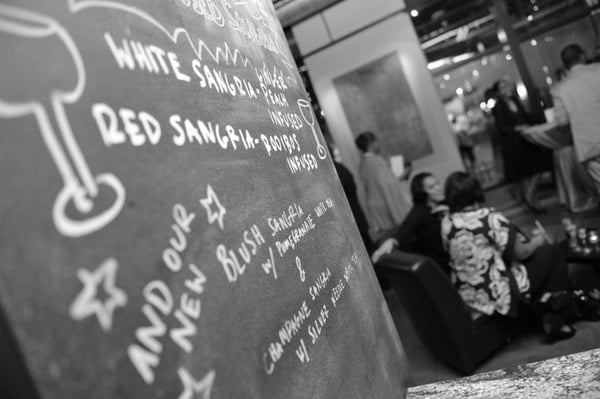 WHITE SANGRIA - GINGER
PEACH
INFUSED
RED SANGRIA - ROOIBOS
INFUSED
AND OUR
NEW
BLUSH SANGRIA
W/ POMEGRANATE WHITE TEA
&
CHAMPAGNE SANGRIA
W/ SILVER NEEDLE WHITE TEA